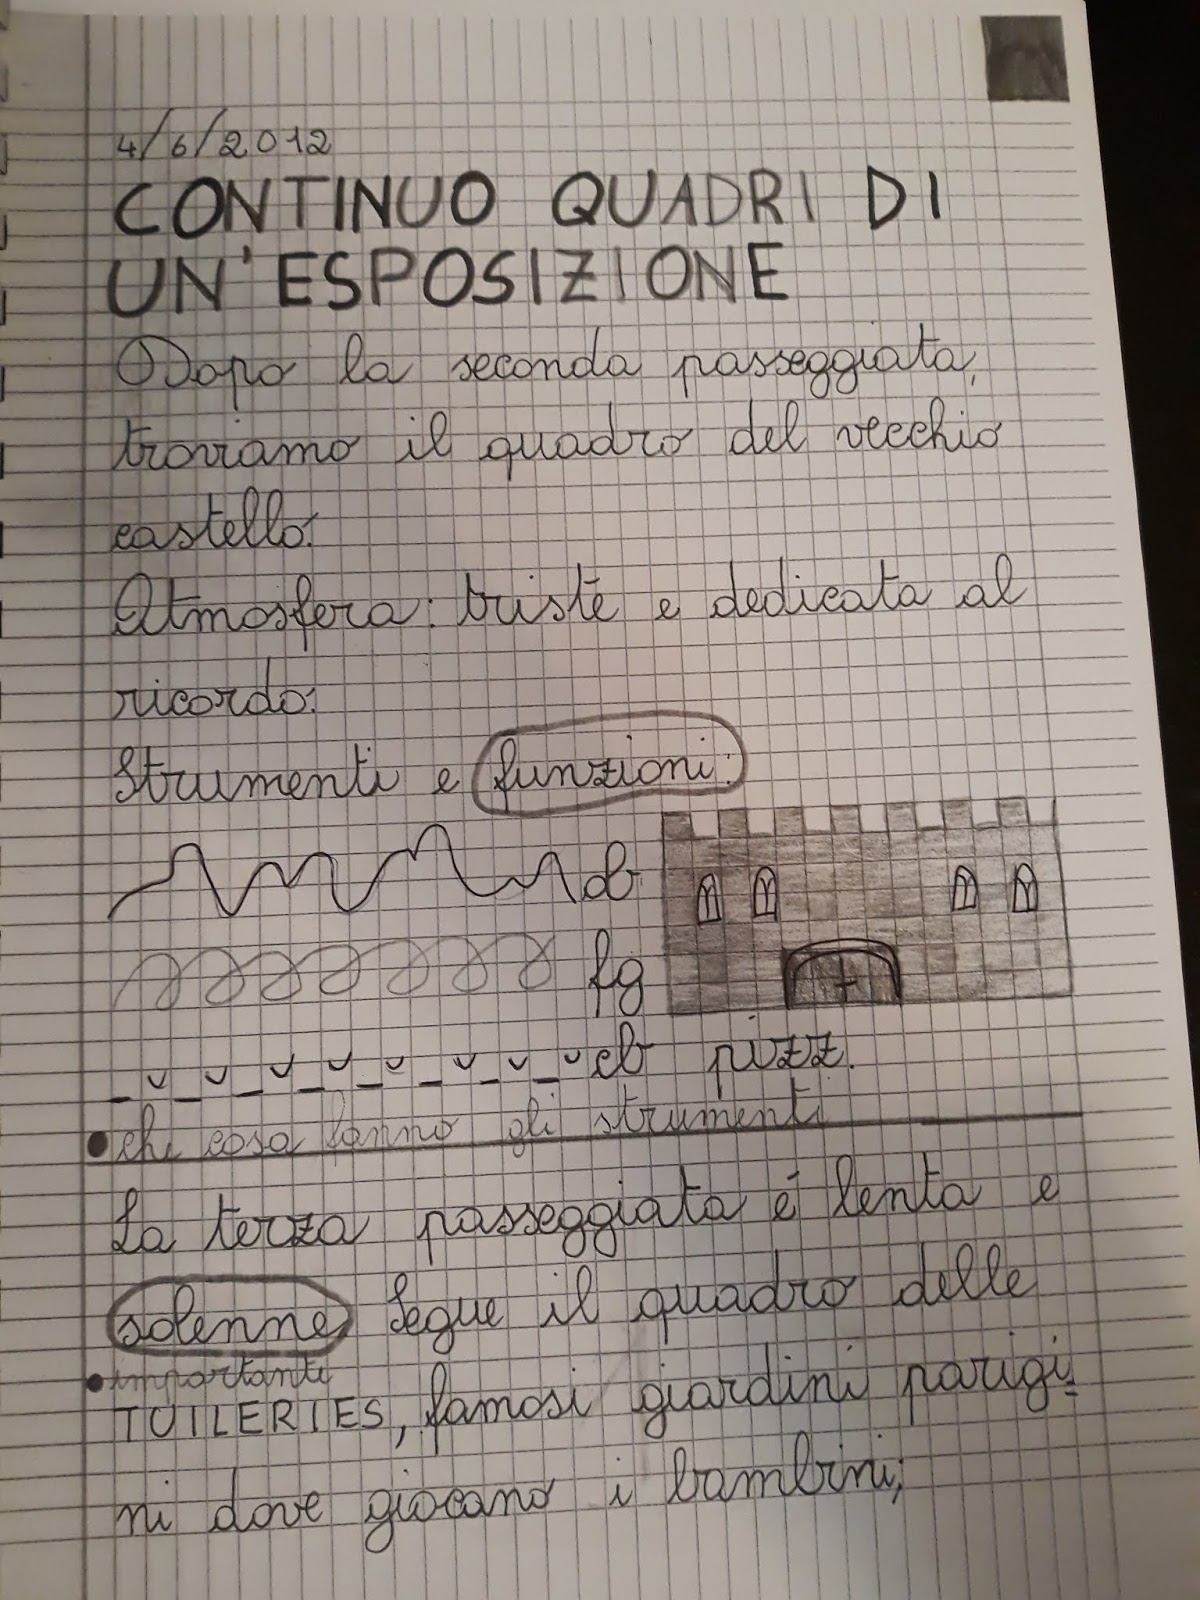 4/6/2012
CONTINUO QUADRI DI
UN'ESPOSIZIONE
Dopo la seconda passeggiata,
troviamo il quadro del vecchio
castello.
Atmosfera: triste e dedicata al
ricordo.
Strumenti e funzioni:
ob
fg
cb pizz.
• che cosa fanno gli strumenti
La terza passeggiata é lenta e
solenne. Segue il quadro delle
• importante
TUILERIES, famosi giardini parigi-
ni dove giocano i bambini;